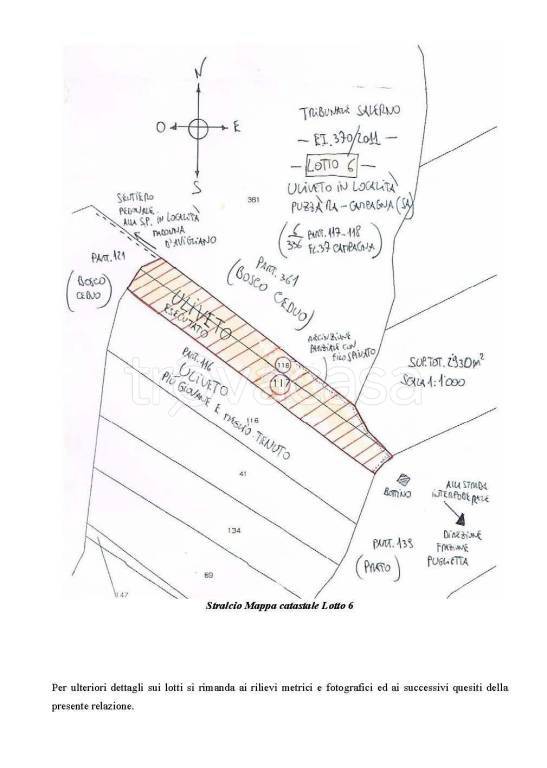 N
O E
S
TRIBUNALE SALERNO
- E.I. 370/2011 -
- LOTTO 6 -
ULIVETO IN LOCALITÀ
PUZZARA - CAMPAGNA (SA)
PART. 117-118
FG.37 CAMPAGNA
361
SENTIERO
PEDONALE
ALLA S.P. IN LOCALITÀ
MADONNA
D'AVIGLIANO
PART. 121
(BOSCO
CEDUO)
PART. 361
(BOSCO CEDUO)
ULIVETO
ESECUTATO
RECINZIONE
PARZIALE CON
FILO SPINATO
118
117
SUP. TOT. 2930 m²
SCALA 1:1000
PART. 116
ULIVETO
PIÙ GIOVANE E MEGLIO TENUTO
116
trovacasa
41
BOTTINO
ALLA STRADA
INTERPODERALE
134
DIREZIONE
FRAZIONE
PUGLIETTA
PART. 139
(PRATO)
69
147
Stralcio Mappa catastale Lotto 6
Per ulteriori dettagli sui lotti si rimanda ai rilievi metrici e fotografici ed ai successivi quesiti della
presente relazione.